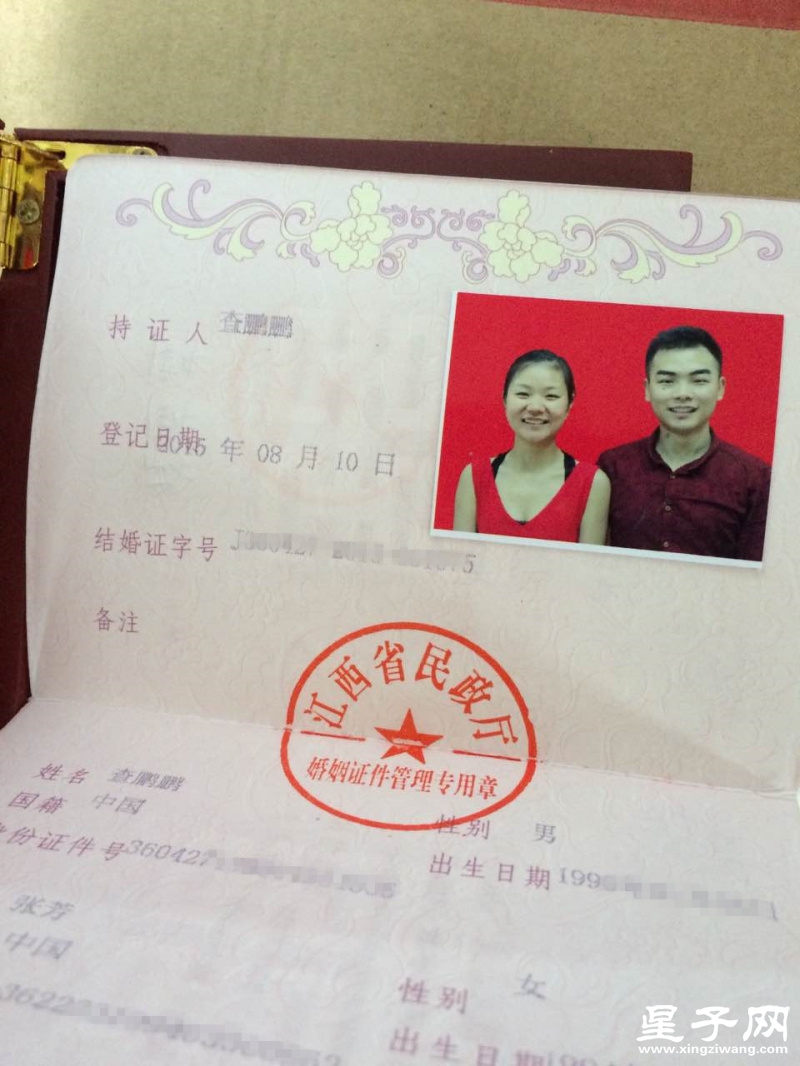 持证人 查鹏鹏
登记日期 2015 年 08 月 10 日
结婚证字号
备注
江西省民政厅
婚姻证件管理专用章
姓名 查鹏鹏
国籍 中国
性别 男
身份证件号 360427
出生日期 199
张芳
中国
性别 女
出生日期 199
星子网
www.xingziwang.com